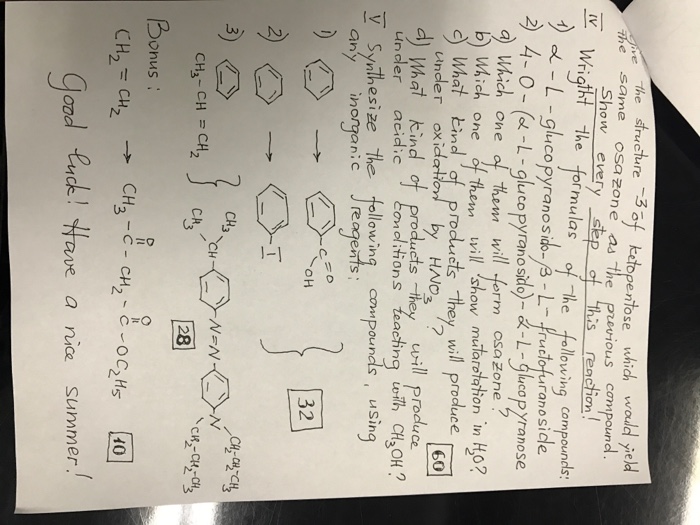 Give the structure -3 of ketopentose, which would yield
the same osazone as the previous compound.
Show every step of this reaction!
IV Wright the formulas of the following compounds:
1) α-L-glucopyranosido-β-L-fructofuranoside
2) 4-O-(α-L-glucopyranosido)-α-L-glucopyranose
a) Which one of them will form osazone?
b) Which one of them will show mutarotation in H₂O?
c) What kind of products they will produce
under oxidation by HNO₃?
d) What kind of products they will produce
under acidic conditions reacting with CH₃OH?
60
V Synthesize the following compounds, using
any inorganic reagents:
1) → C=O OH
2) → I
32
3) CH₃-CH=CH₂ } CH₃ CH₃ CH N=N N CH₂-CH₂-CH₃ CH₂-CH₂-CH₃
28
Bonus:
CH₂=CH₂ → CH₃-C-CH₂-C-OC₂H₅ O O
10
Good luck! Have a nice summer!